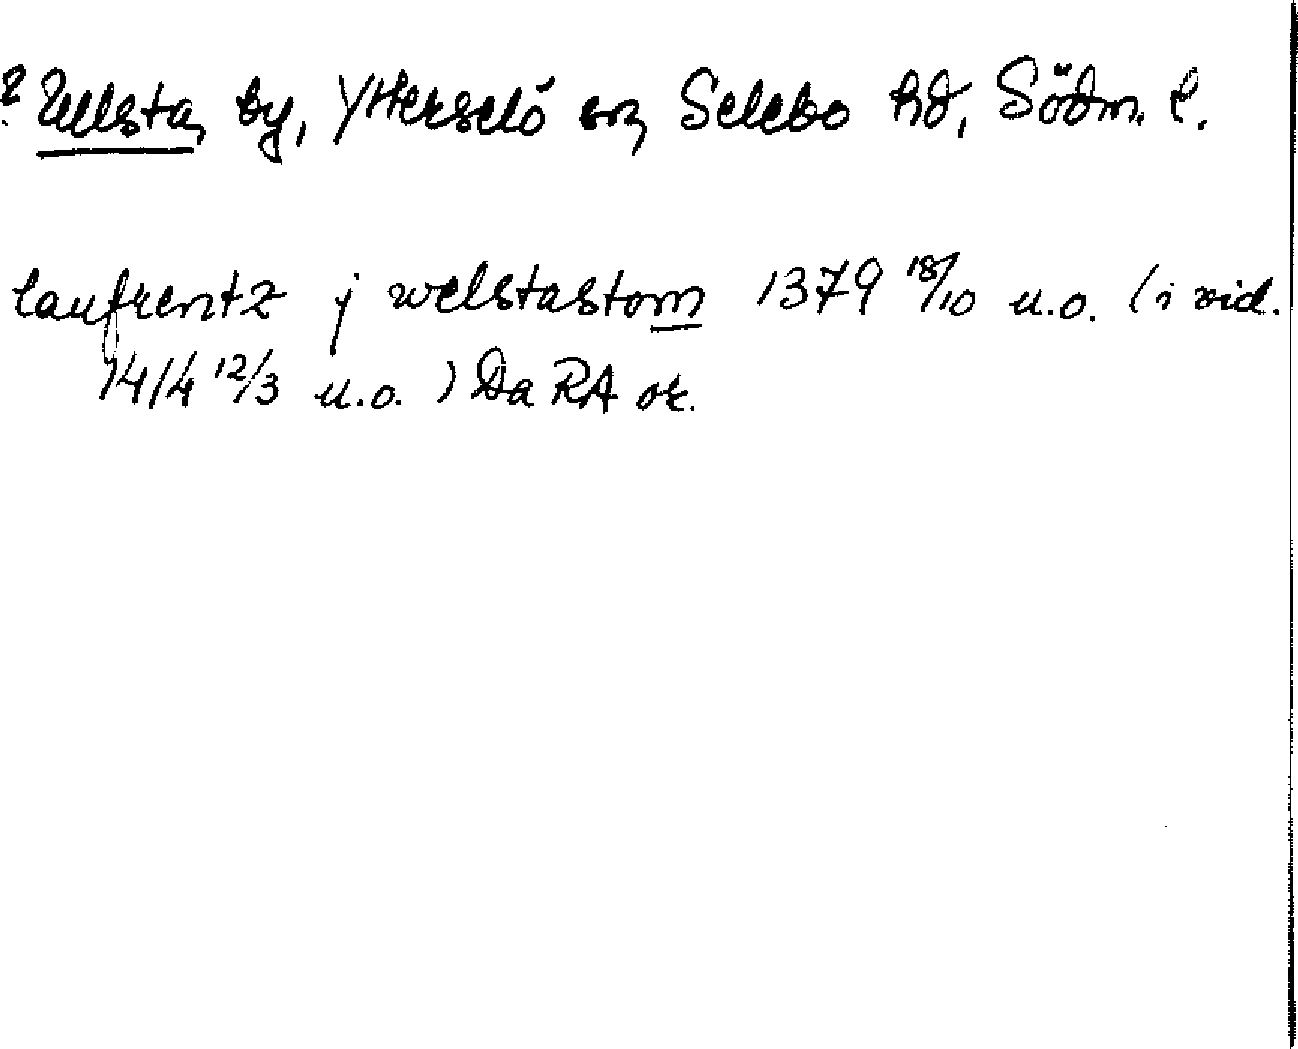 ? Ullsta, by, Ytterselö sn, Selebo hd, Södm. l.
laufrentz j welstastom 1379 18/10 u.o. (i vid.
1414 12/3 u.o.) Da RA or.